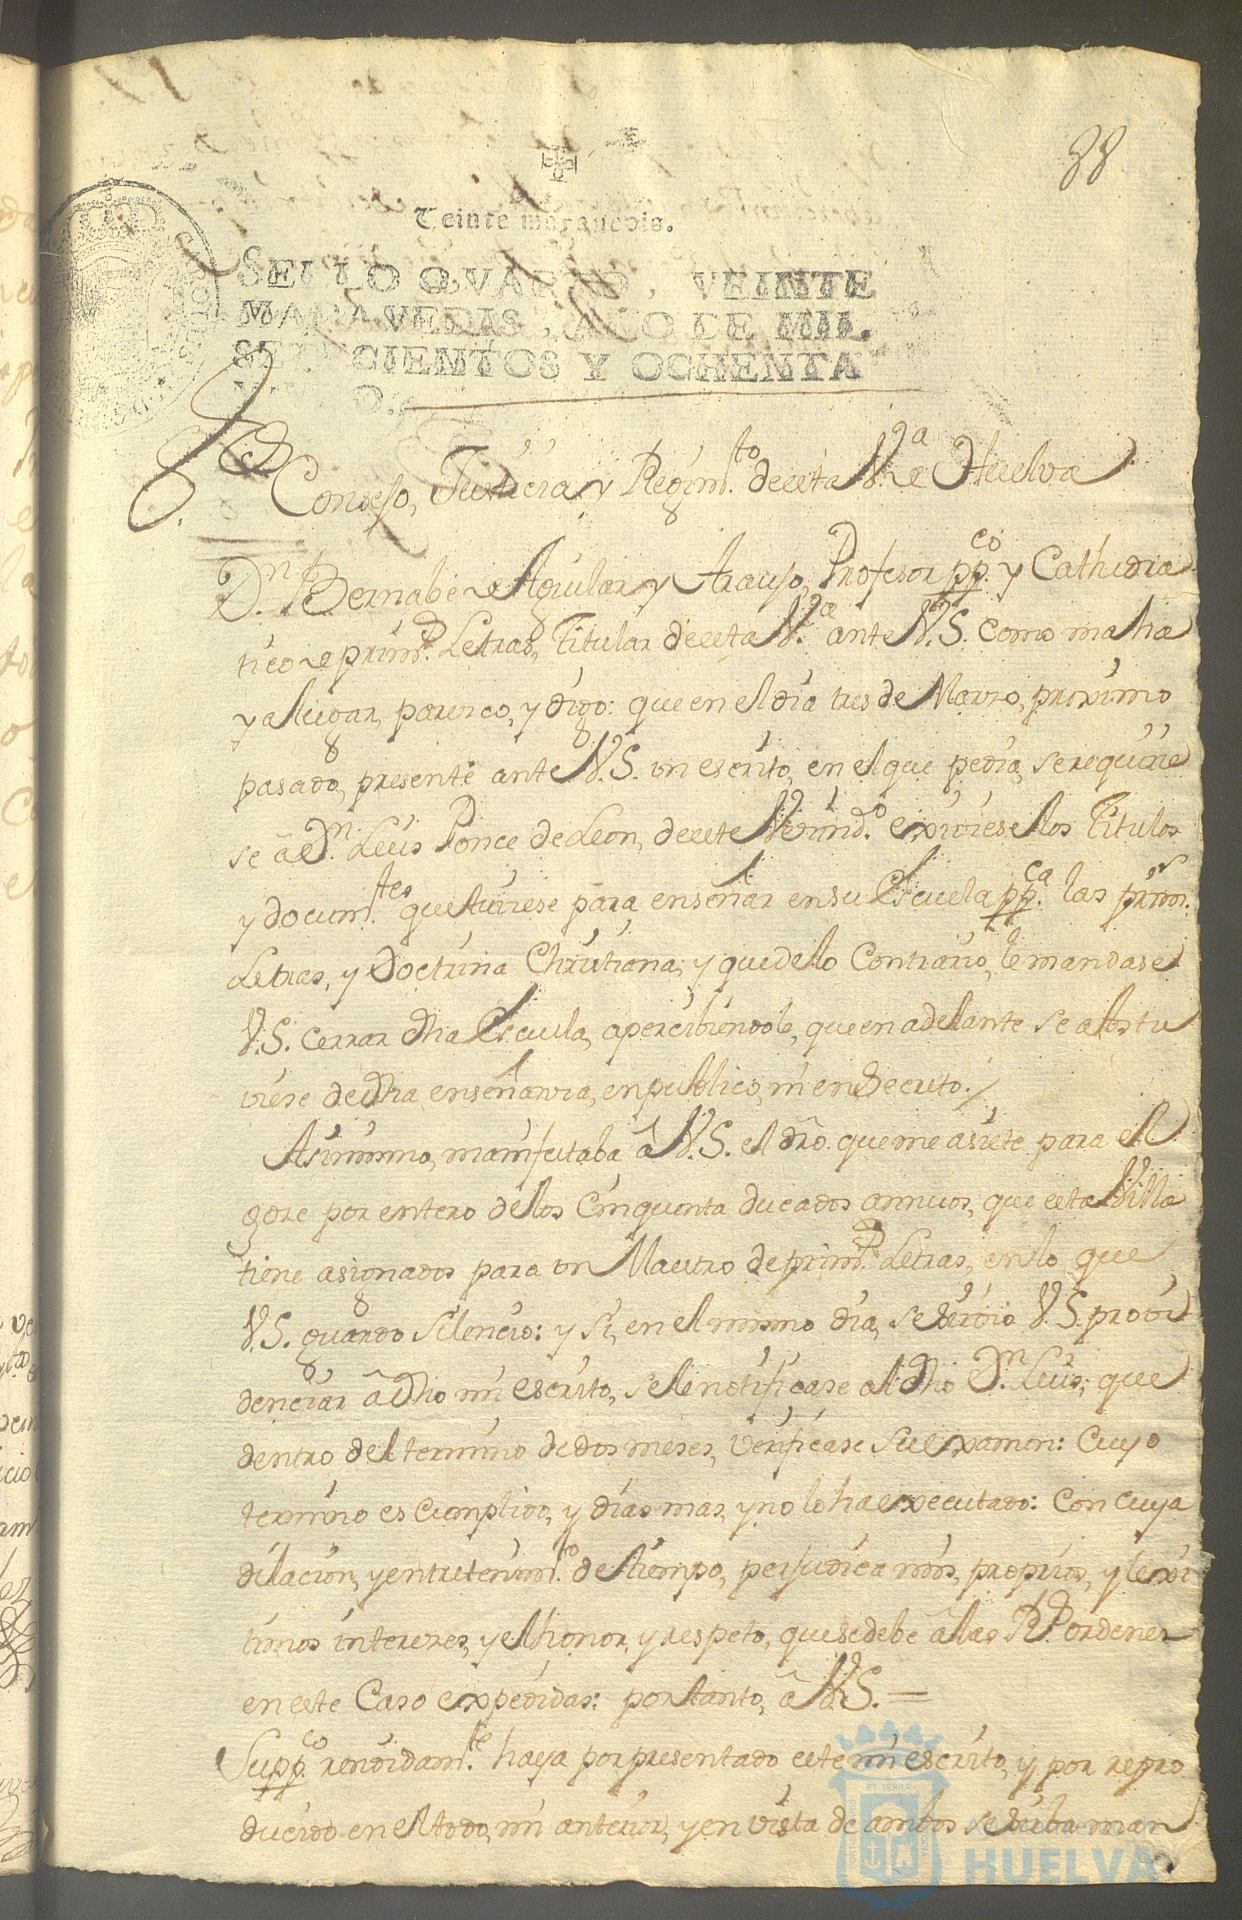 88
Veinte maravedis.
SELLO QVARTO, VEINTE
MARAVEDIS, AÑO DE MIL
SETECIENTOS Y OCHENTA
Y VNO.
Consejo, Justicia, y Regim.to de esta V.ª de Huelva
D.n Bernabe de Aguilar y Araujo, Profesor pp.co y Cathedra
tico de prim.s Letras, Titular de esta V.ª ante V.S. como mas ha
ya lugar, paresco, y digo: que en el dia tres de Marzo, proximo
pasado, presentè ante V.S. un escrito, en el que pedia, se requirie
se a D.n Luis Ponce de Leon, de este Vecind.o exiviese los Titulos
y docum.tos que tuviese para enseñar en su Escuela pp.ca las prim.s
Letras, y Doctrina Christiana; y que delo Contrario, le mandase
V.S. cerrar dha Escuela, apercibiendole, que en adelante se abstu
viese de dha enseñanza, en publico, ni en Secreto. /
Asimismo, manifestaba â V.S. el dro. que me asiste para el
gose por entero delos Cinquenta ducados annuos, que esta Villa
tiene asignados para un Maestro de prim.s Letras, en lo que
V.S. guardo silencio: y si, en el mismo dia, se sirvio V.S. provi
denciar â dho mi escrito, se le notificase al dho D.n Luis, que
dentro del termino de dos meses, verificase su examen: Cuyo
termino es cumplido, y dias mas, y no lo ha executado: Con cuya
dilacion, y entretenim.to de tiempo, perjudica mis, proprios, y lexi
timos intereses, y el honor, y respeto, que se debe â las R.s ordenes
en este Caso expedidas: por tanto, â V.S. =
Supp.co rendidam.te haya por presentado este mi escrito, y por repro
ducido en el todo, mi anterior, y en vista de ambos se sirba man
HUELVA